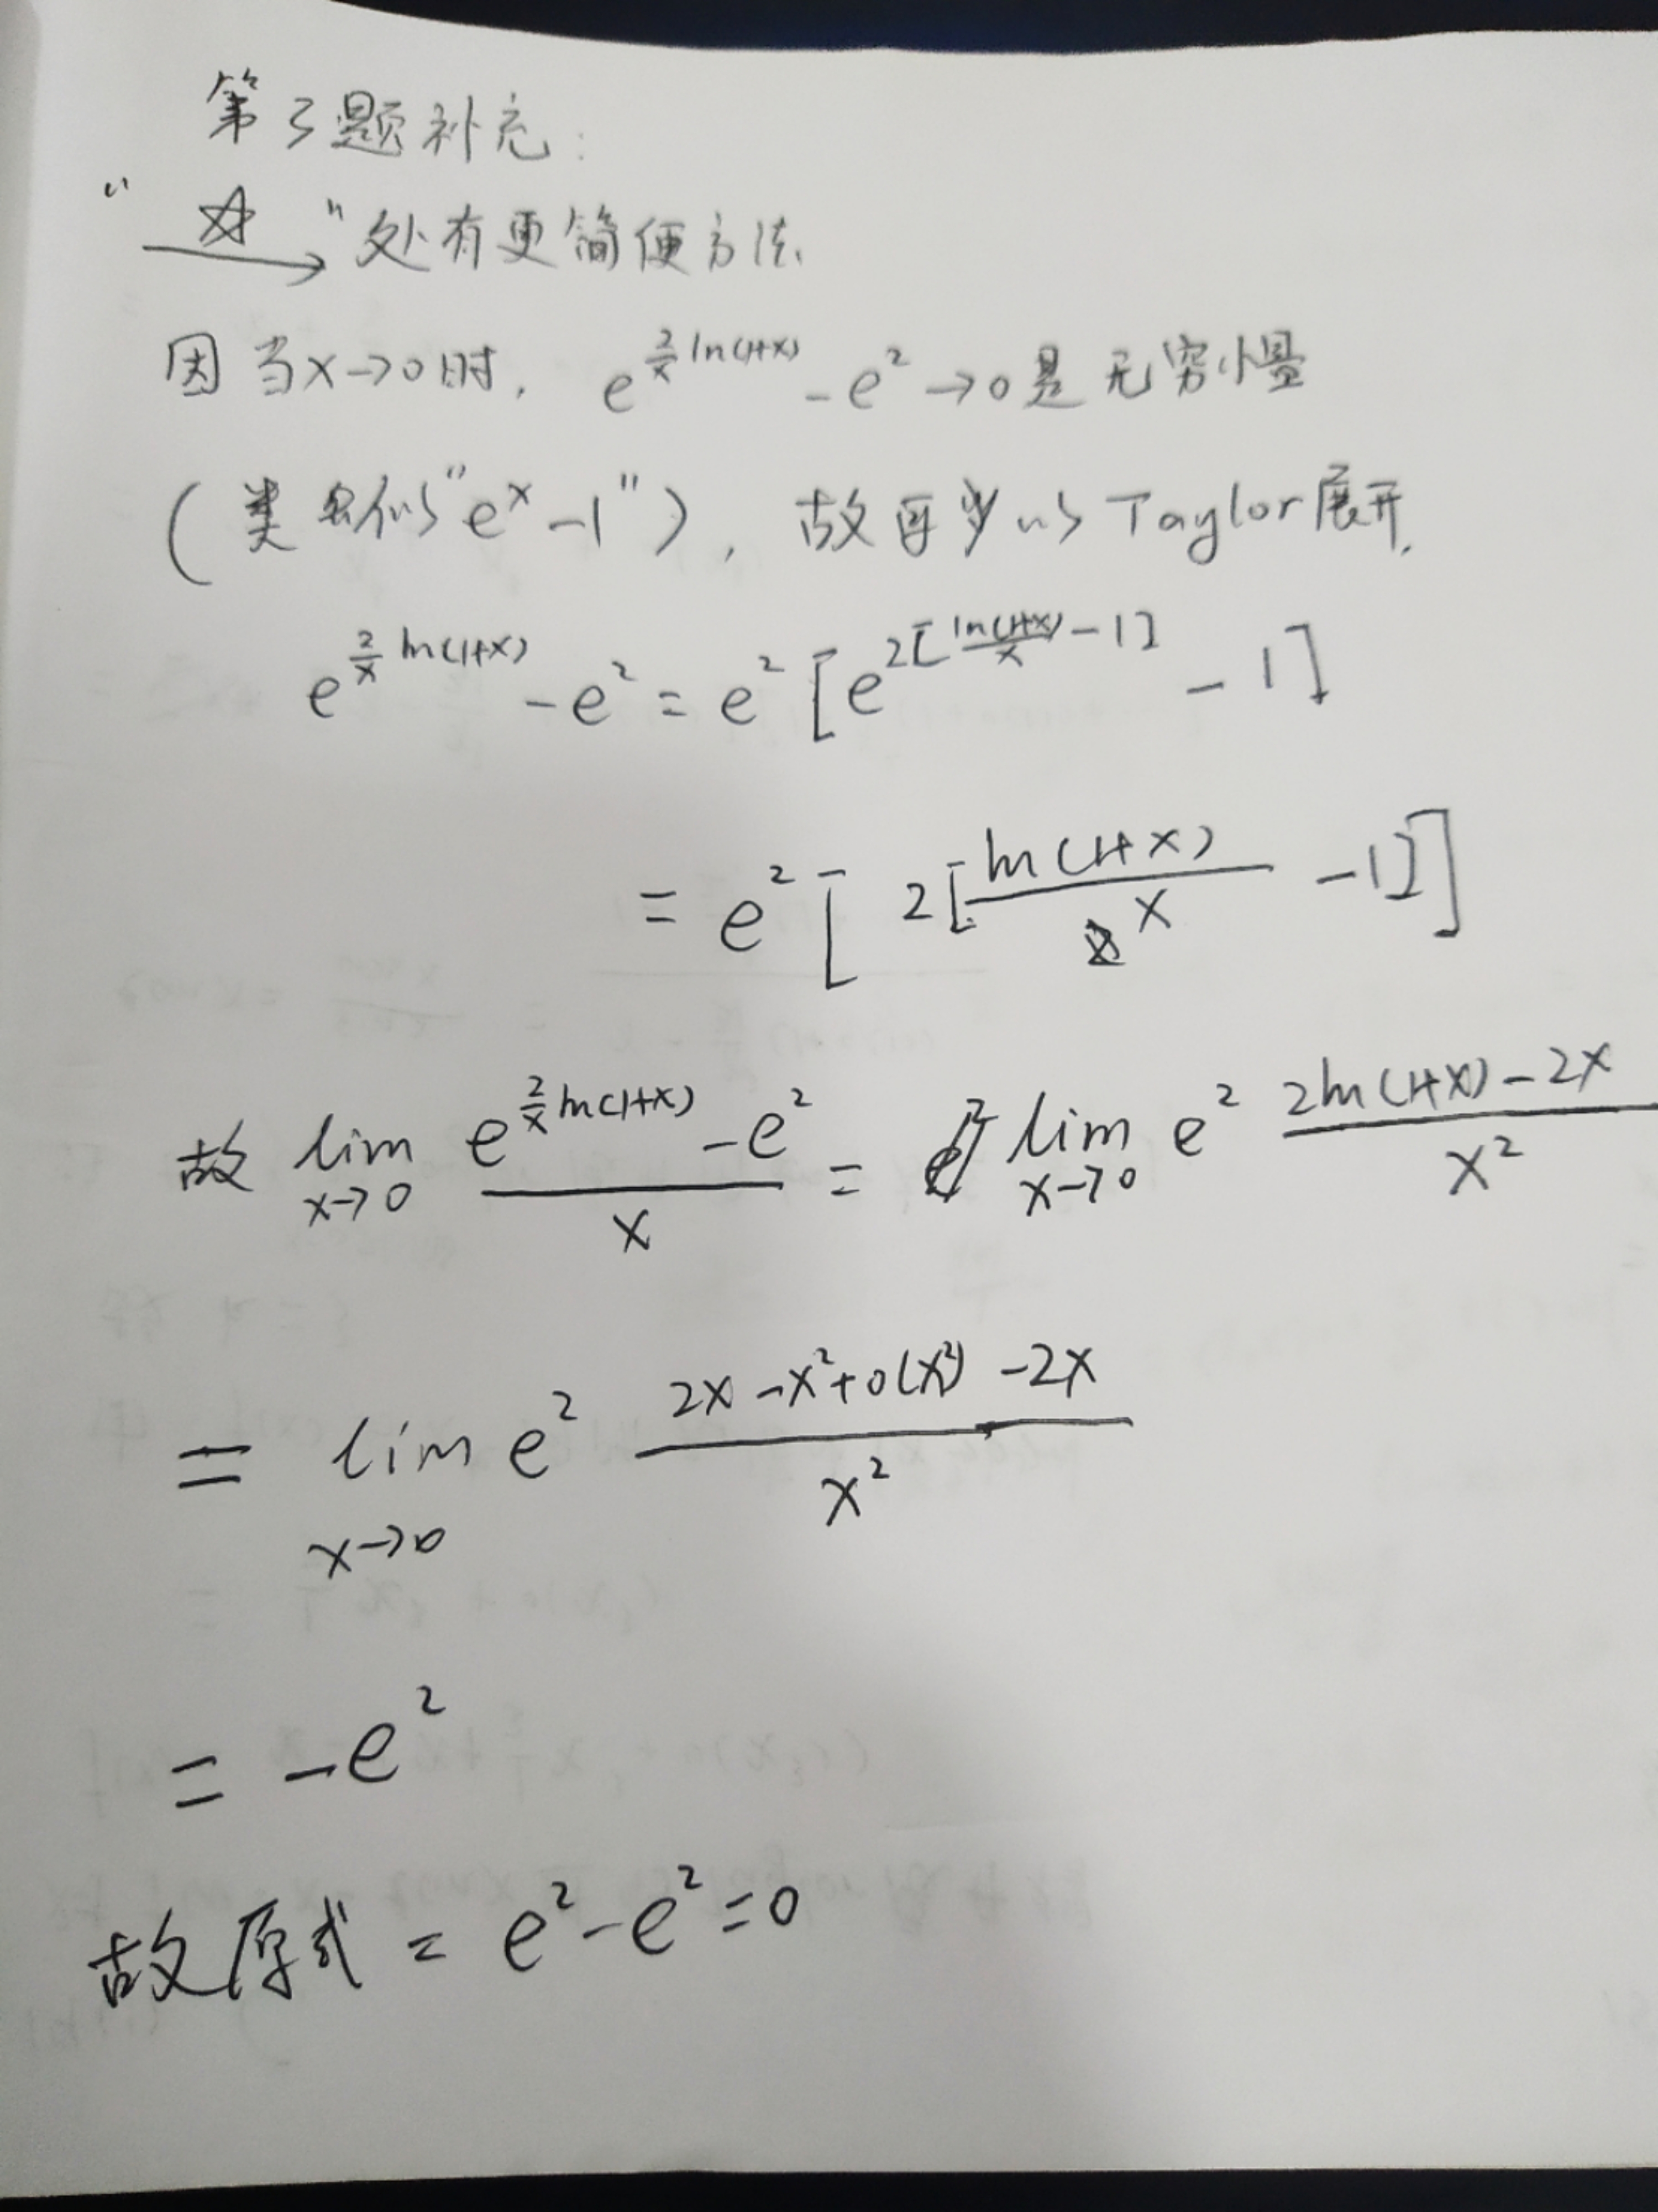 第3题补充:
"☆→"处有更简便方法.
因当x→0时, e^{\frac{2}{x}ln(1+x)} - e^2 → 0 是无穷小量
(类似"e^x-1"), 故可 Taylor展开.
e^{\frac{2}{x}ln(1+x)} - e^2 = e^2[e^{2[\frac{ln(1+x)}{x}-1]} - 1]
= e^2[2[\frac{ln(1+x)}{x} - 1]]
故 lim_{x→0} \frac{e^{\frac{2}{x}ln(1+x)} - e^2}{x} = lim_{x→0} e^2 \frac{2ln(1+x)-2x}{x^2}
= lim_{x→0} e^2 \frac{2x-x^2+o(x^2)-2x}{x^2}
= -e^2
故原式 = e^2-e^2=0